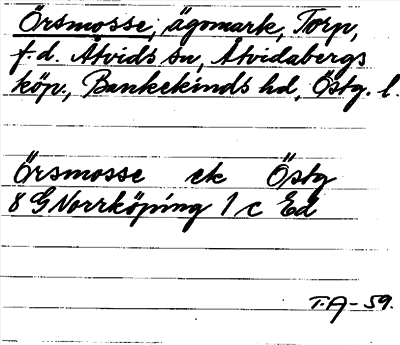 Örsmosse, ägomark, Torp,
f.d. Åtvids sn, Åtvidabergs
köp., Bankekinds hd, Östg. l.
Örsmosse ek Östg
8 G Norrköping 1 c Ed
T.A-59.